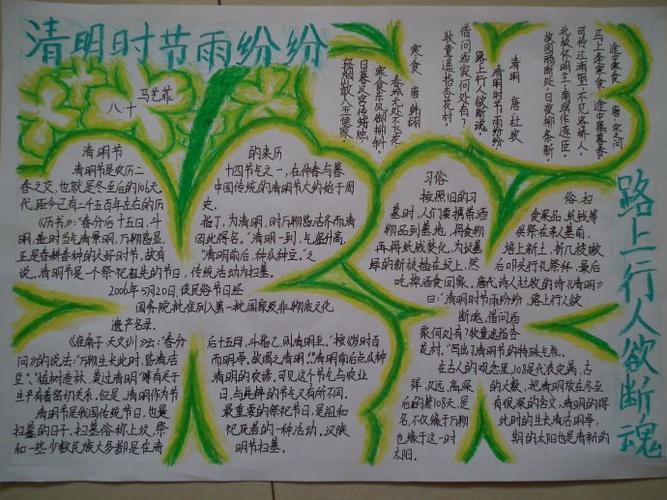 清明时节雨纷纷
马艺菲
八十
途中寒食 唐 宋之问
马上逢寒食，途中属暮春。
可怜江浦望，不见洛桥人。
北极怀明主，南溟作逐臣。
故园肠断处，日夜柳条新。
清明 唐 杜牧
清明时节雨纷纷
路上行人欲断魂。
借问酒家何处有？
牧童遥指杏花村。
寒食 唐 韩翃
春城无处不飞花，
寒食东风御柳斜。
日暮汉宫传蜡烛，
轻烟散入五侯家。
清明节的来历
清明节是农历二十四节气之一，在仲春与暮
春之交，也就是冬至后的106天。中国传统的清明节大约始于周
代，距今已有二千五百年左右的历史。
《历书》："春分后十五日，斗指丁，为清明，时万物皆洁齐而清
明，盖时当气清景明，万物皆显，因此得名。"清明一到，气温升高，
正是春耕春种的大好时节，故有"清明前后，种瓜种豆。"之
说。清明节是一个祭祀祖先的节日，传统活动为扫墓。
2006年5月20日，该民俗节日经
国务院批准列入第一批国家级非物质文化
遗产名录。
《淮南子·天文训》云："春分后十五日，斗指乙，则清明至。"按《岁时百
问》的说法："万物生长此时，皆清洁而明净，故谓之清明。"清明前后点瓜种
豆"、"植树造林，莫过清明"等有关于清明的农谚，可见这个节气与农业
生产有着密切关系。但是，清明作为节日，与纯粹的节气又有所不同。
清明节是我国传统节日，也是最重要的祭祀节日，是祖和
扫墓的日子，扫墓俗称上坟，祭祀死者的一种活动。汉族
和一些少数民族大多都是在清明节扫墓。
习俗
按照旧的习俗，扫
墓时，人们要携带酒食果品、纸钱等
物品到墓地，将食物供祭在亲人墓前，
再将纸钱焚化，为坟墓培上新土，折几枝嫩
绿的新枝插在坟上，然后叩头行礼祭拜，最后
吃掉酒食回家。唐代诗人杜牧的诗《清明》
曰：清明时节雨纷纷，路上行人欲
断魂。借问酒
家何处有？牧童遥指杏
花村。"写出了清明节的特殊气氛。
在古人的观念里，108是代表完满、吉
祥、久远、高深的大数，把清明放在冬至
后的第108天，是有很深的含义，清明的得
名，不仅缘于万物此时的生长清洁明净，
也缘于这一时期的太阳也是清新的
太阳。
路上行人欲断魂